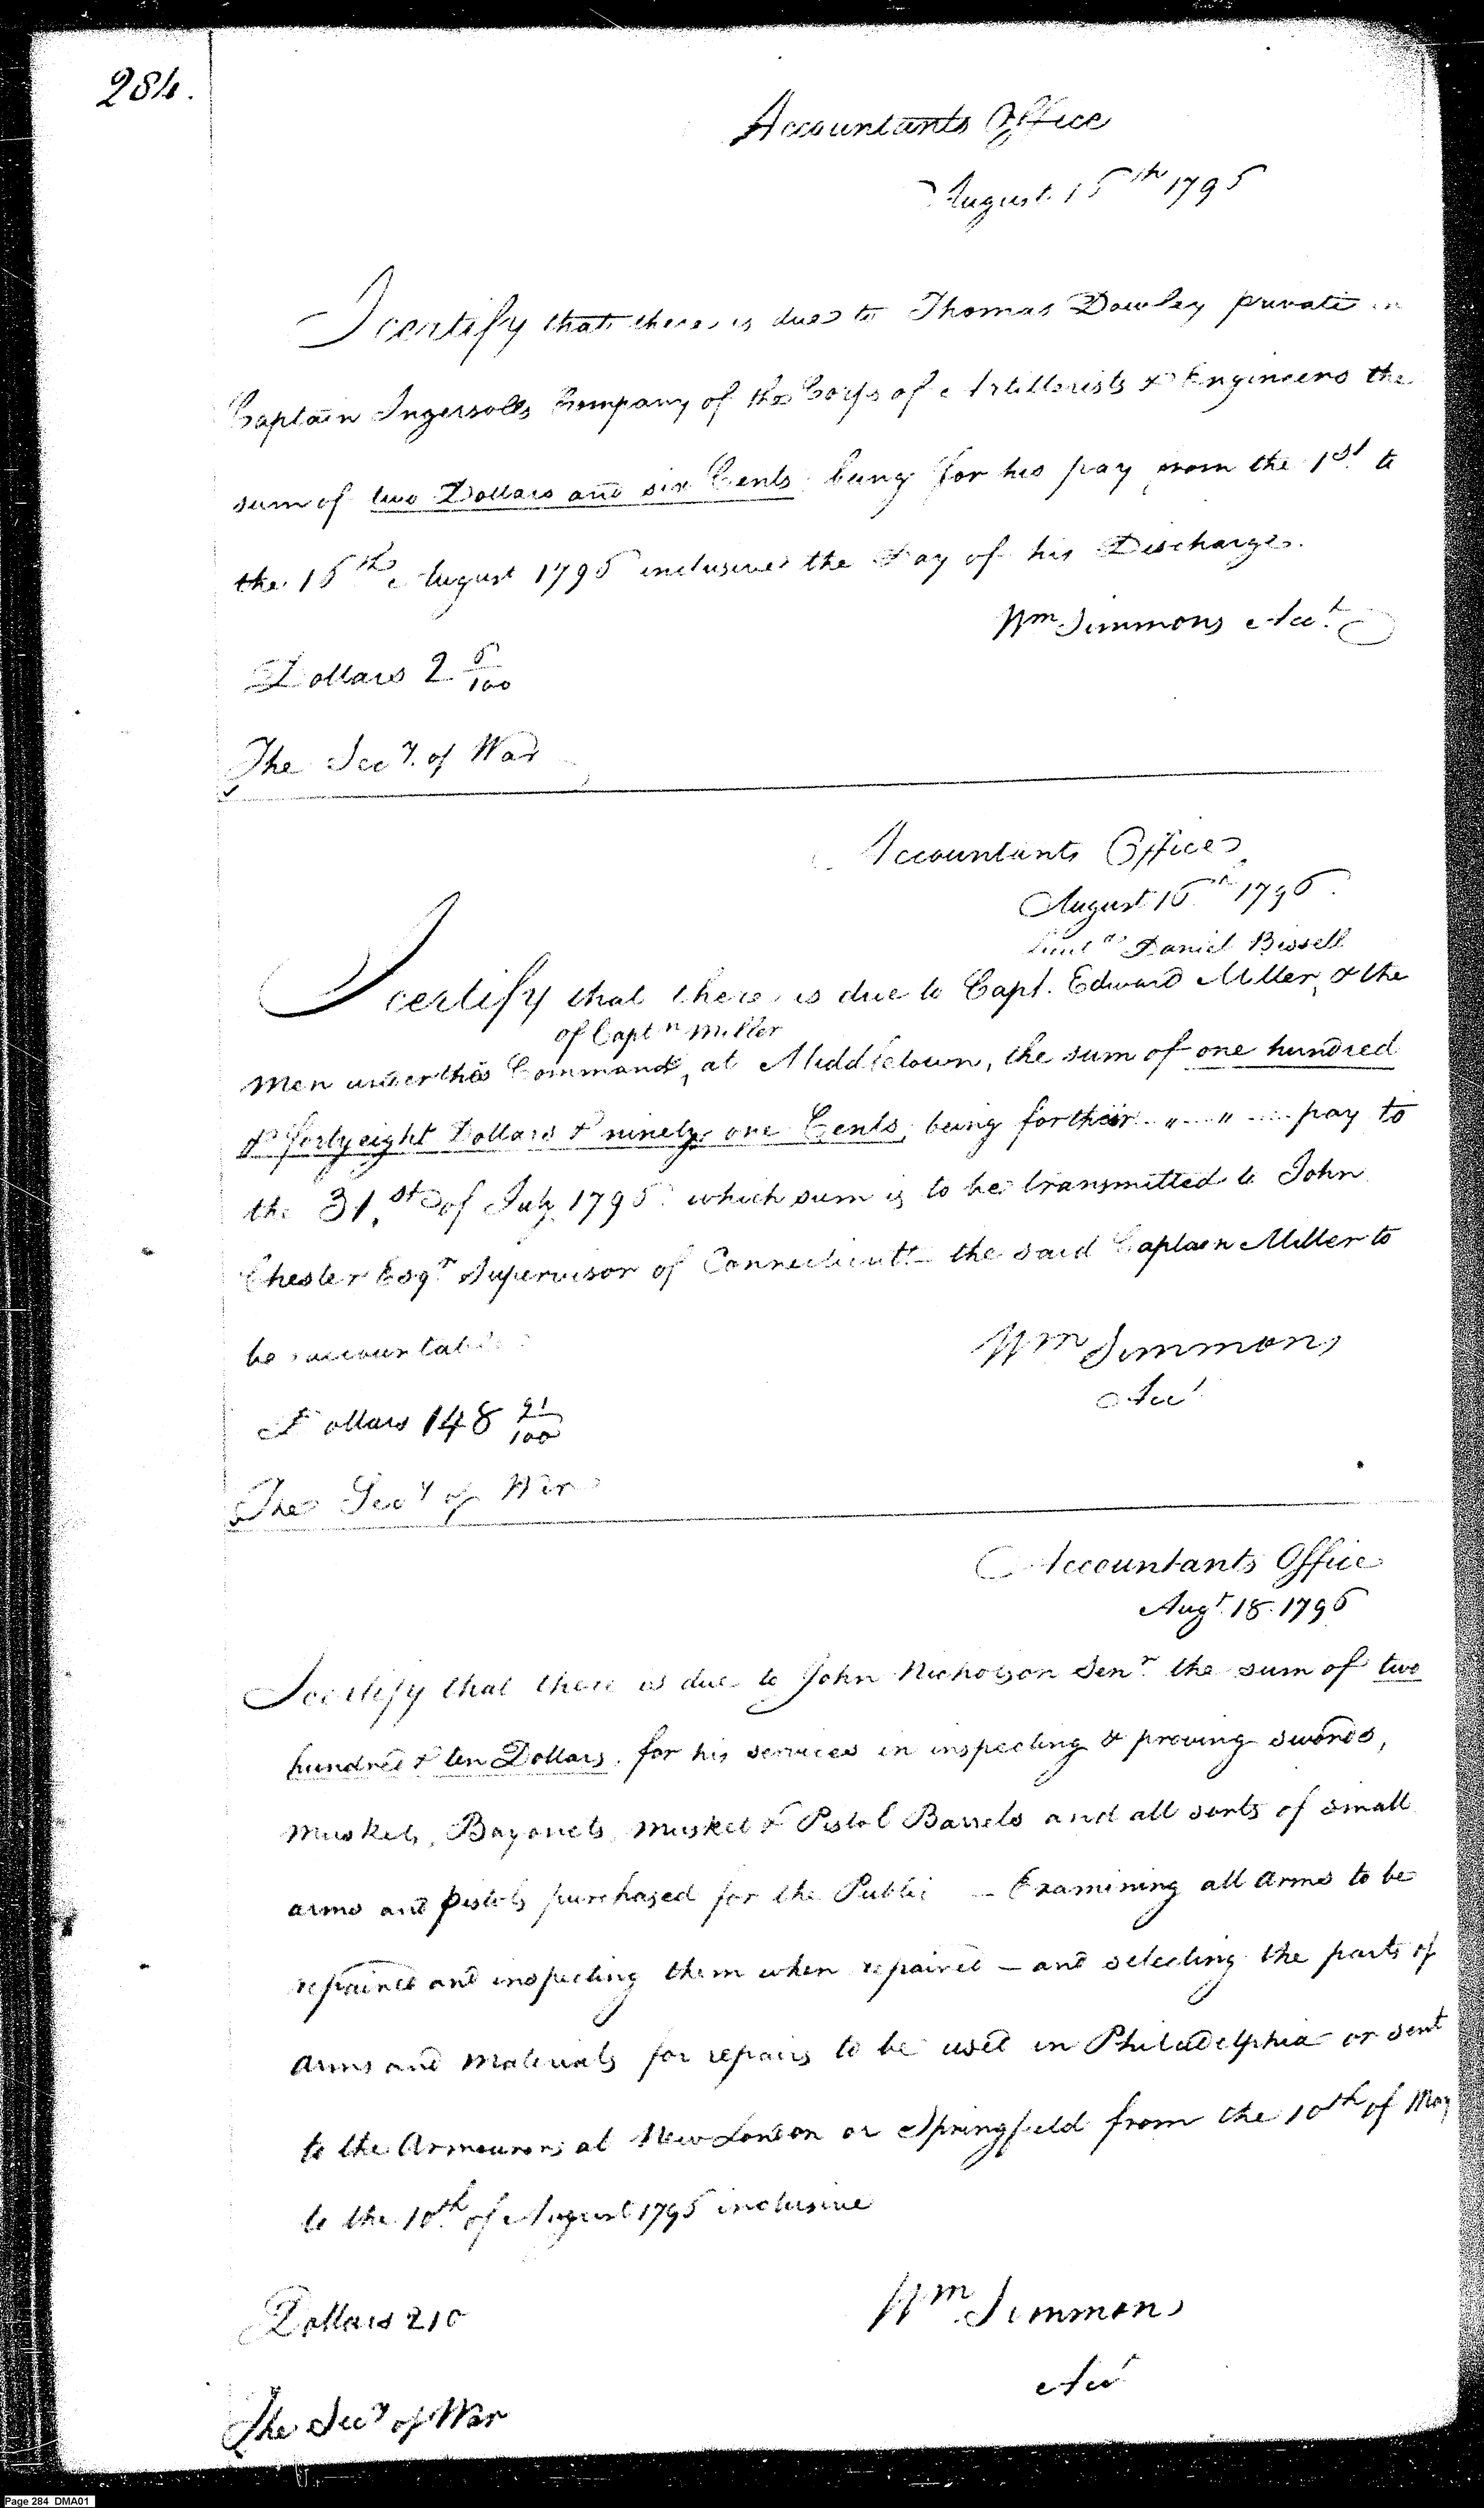 284.
Accountants Office
August 15th 1795
I certify that there is due to Thomas Dowley private in
Captain Ingersolls Company of the Corps of Artillerists & Engineers the
sum of two Dollars and six Cents being for his pay from the 1st to
the 15th August 1795 inclusive the Day of his Discharge.
Wm Simmons Acct
Dollars 2 6/100
The Secy. of War
Accountants Office
August 15th 1795.
Lieut Daniel Bissell
I certify that there is due to Capt. Edward Miller, & the
of Captn Miller
Men under the Command, at Middletown, the sum of one hundred
& forty eight Dollars & ninety one Cents, being for their " " pay to
the 31st of July 1795 which sum is to be transmitted to John
Chester Esqr Supervisor of Connecticut - the said Captain Miller to
be accountable
Wm Simmons
Acct
Dollars 148 91/100
The Secy of War
Accountants Office
Augt. 18. 1795
I certify that there is due to John Nicholson Senr. the sum of two
hundred & ten Dollars. for his services in inspecting & proving swords,
Muskets, Bayonets, Musket & Pistol Barrels and all sorts of small
arms and Pistols purchased for the Public — Examining all arms to be
repaired and inspecting them when repaired — and selecting the parts of
arms and Materials for repairs to be used in Philadelphia or sent
to the Armourers at New London or Springfield from the 10th of May
to the 10th of August 1795 inclusive
Dollars 210
Wm Simmons
Acct
The Secy of War
Page 284 DMA01